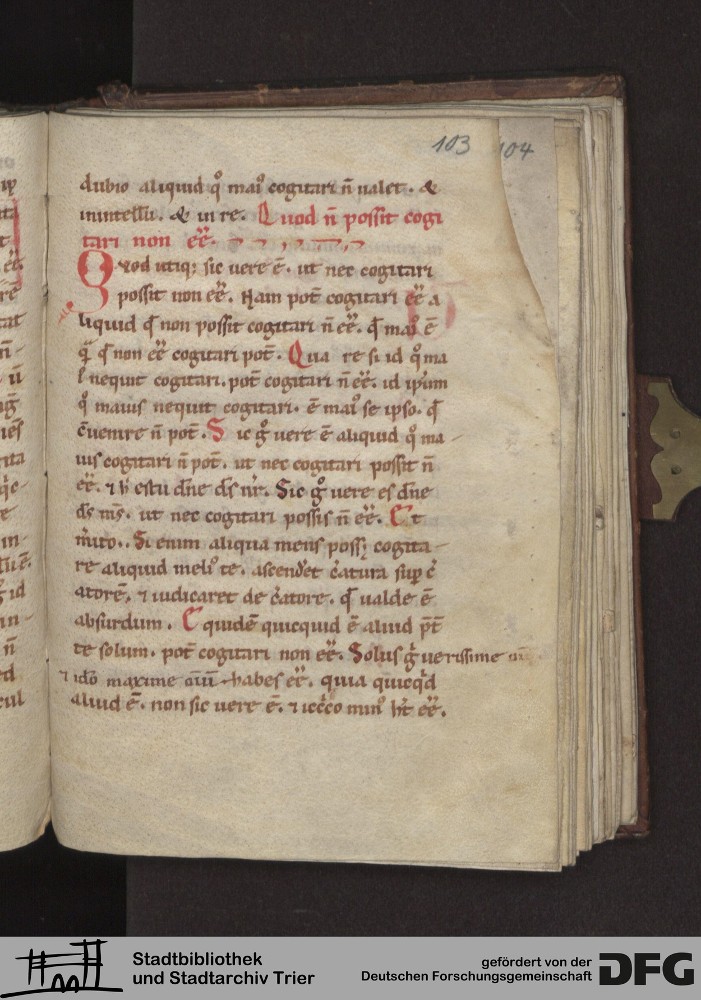 103 104
dubio aliquid qͦ mai᷒ cogitari n̄ ualet . &
inintellū . & in re . Quod n̄ possit cogi
tari non ee̅ .
Quod utiq; sic uere ē . ut nec cogitari
possit non ee̅ . Nam pot̄ cogitari ee̅ a
liquid qd non possit cogitari n̄ ee̅ . qd mai᷒ ē
qͣ qd non ee̅ cogitari pot̄ . Qua re si id qͦ ma
l nequit cogitari . pot̄ cogitari n̄ ee̅ . id ip̄um
qͦ maius nequit cogitari . ē mai᷒ se ipso . qd
c̄uenire n̄ pot̄ . Sic gͦ uere ē aliquid qͦ ma
ius cogitari n̄ pot̄ . ut nec cogitari possit n̄
ee̅ . ⁊ h̓ es tu dn̄e ds̄ nr̄ . Sic gͦ uere es dn̄e
ds̄ ms̄ . ut nec cogitari possis n̄ ee̅ . Et
m̓ito . Si enim aliqua mens poss& cogita
re aliquid meli᷒ te . ascender& c̓atura sup̄ c̓
atorē . ⁊ iudicaret de c̓atore . qd ualde ē
absurdum . Et quidē quicquid ē aliud p̄t̄
te solum . pot̄ cogitari non ee̅ . Solus gͦ uerissime
⁊ idō maxime om̄iū habes ee̅ . quia quicq̓d
aliud ē . non sic uere ē . ⁊ icc̓co min᷒ ht̄ ee̅ .
Stadtbibliothek
und Stadtarchiv Trier
gefördert von der
Deutschen Forschungsgemeinschaft
DFG